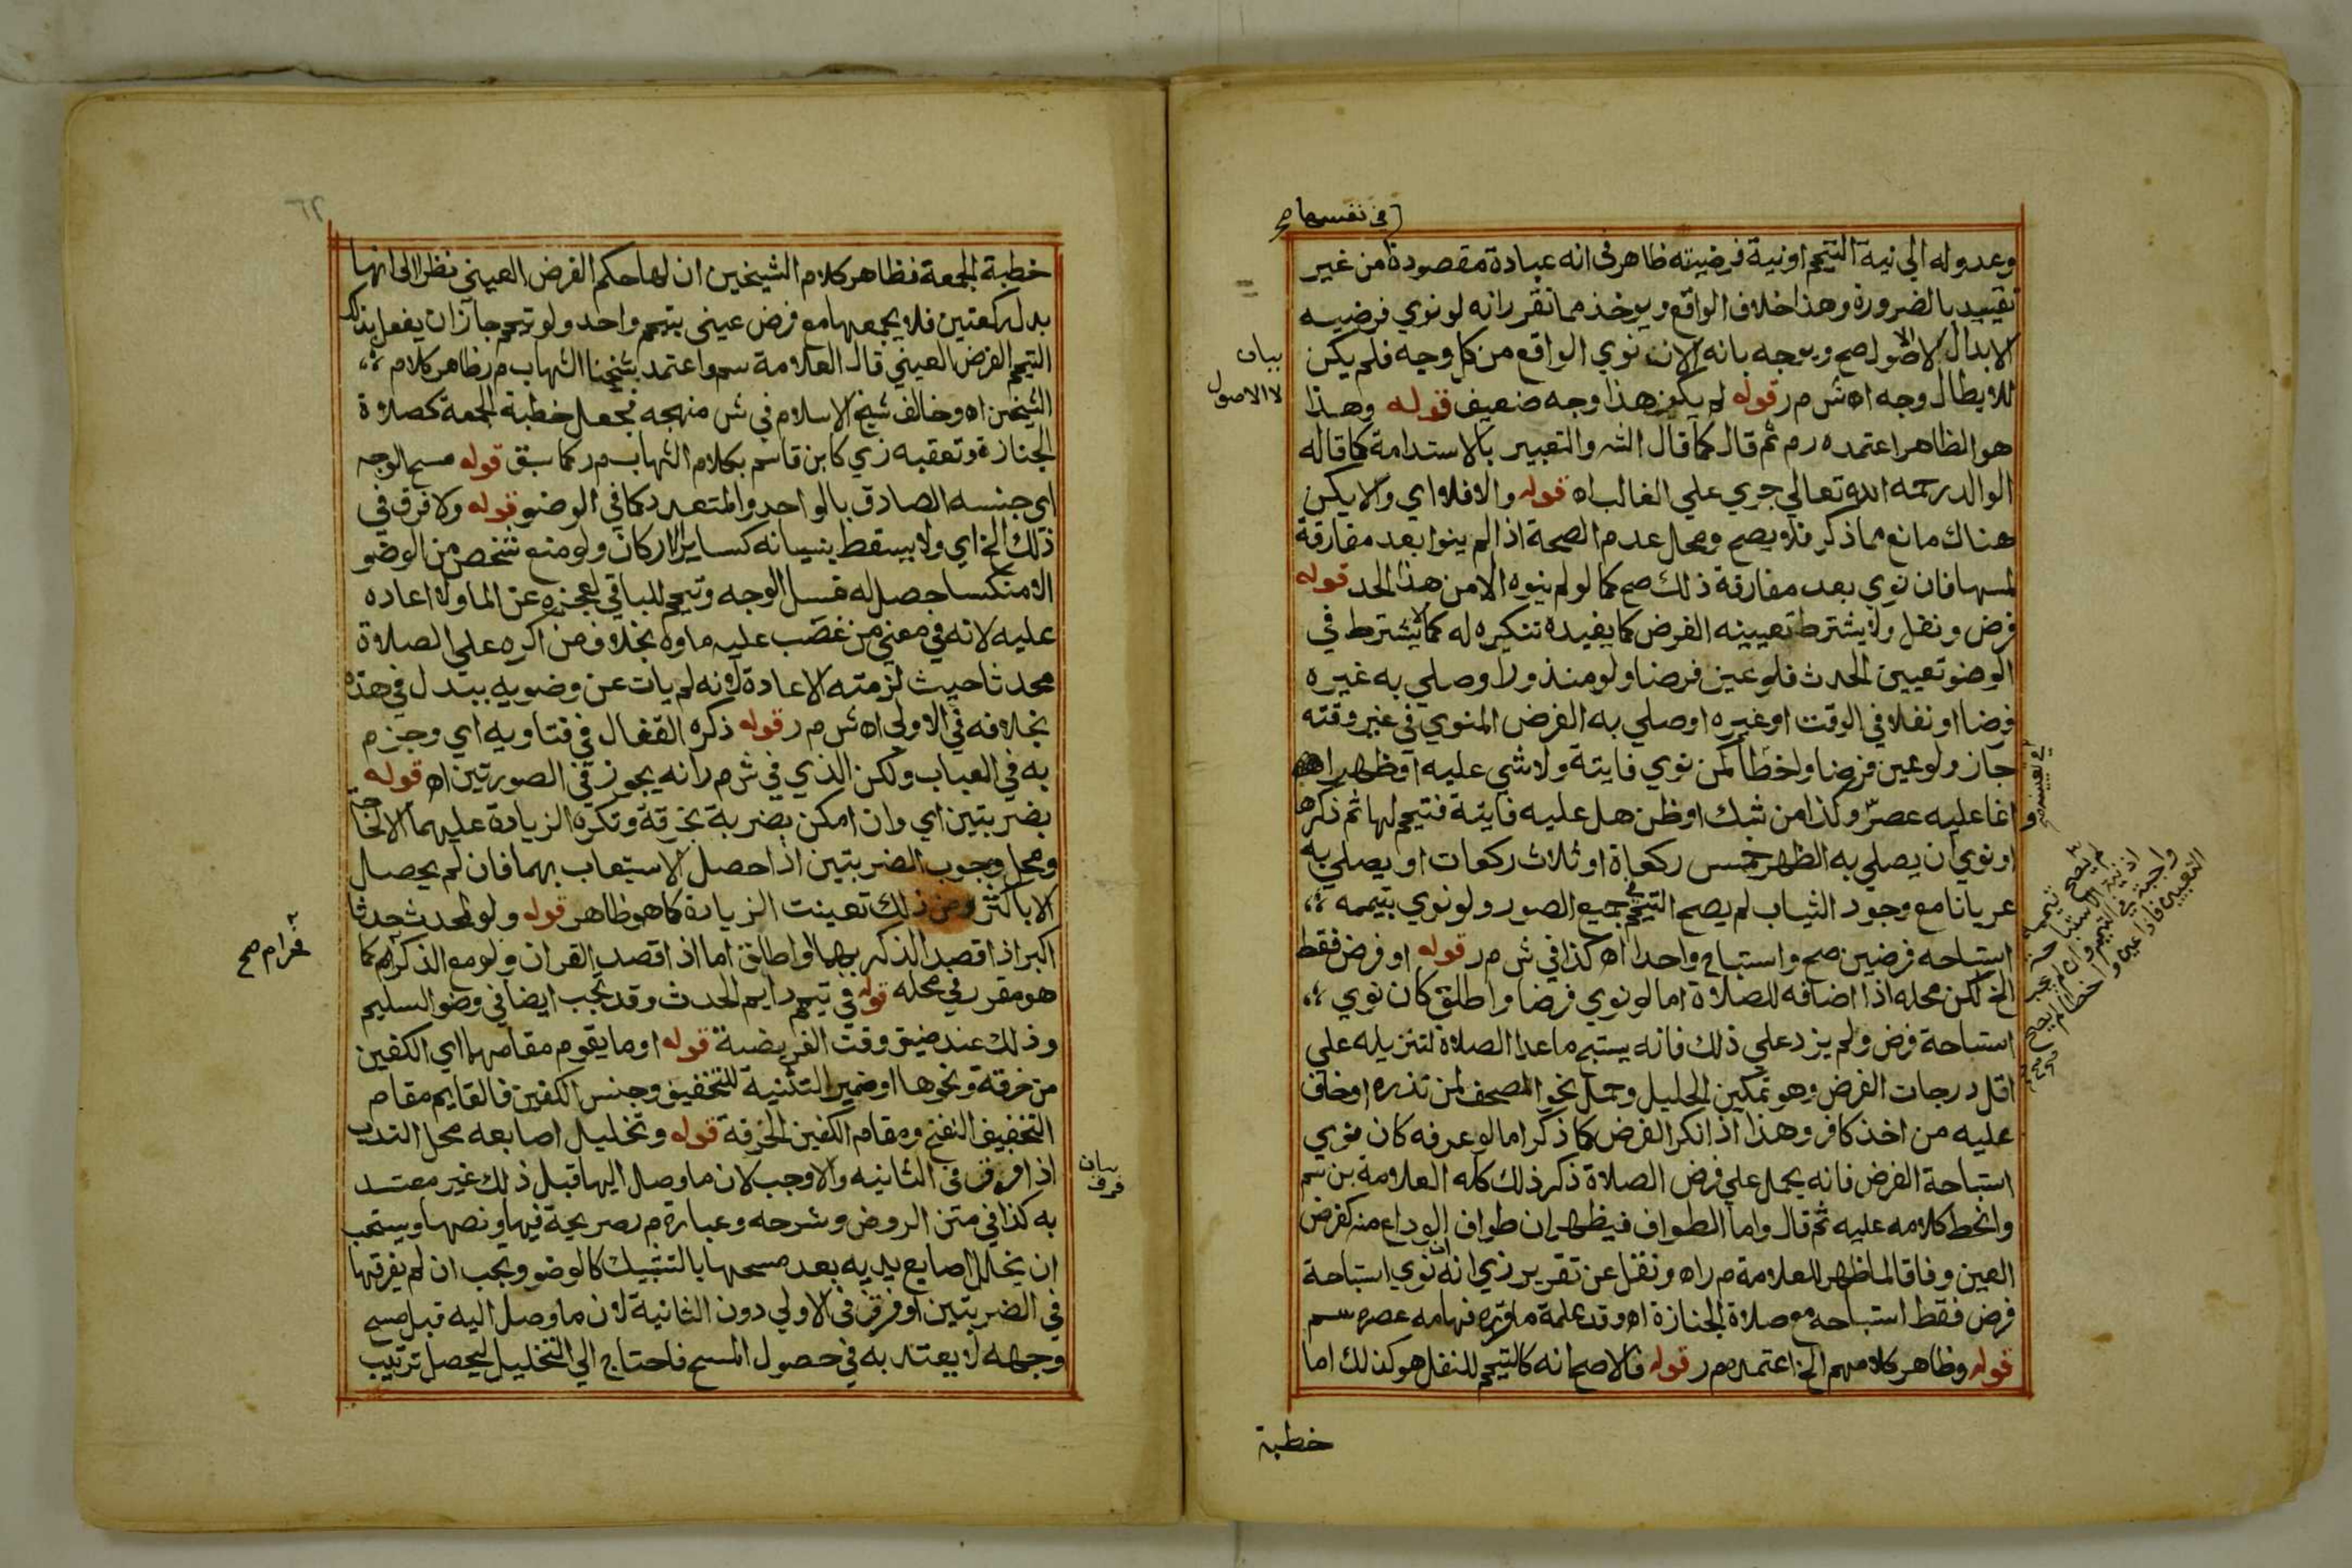 في نفسها صح
وعدوله الي نية التيمم او نية فرضيته ظاهر في انه عبادة مقصودة من غير
تقييد بالضرورة وهذا خلاف الواقع ويوخذ مما تقرر انه لو نوي فرضيه
الابدال لا الاصول صح ويوجه بانه الان نوي الواقع من كل وجه فلم يكن
للابطال وجه اه ش م ر قوله لم يكف هذا وجه ضعيف قوله وهذا
هو الظاهر اعتمده م ر ثم قال كما قال الش والتعبير بالاستدامة كما قاله
الوالد رحمه الله تعالي جري علي الغالب اه قوله والا فلا اي والا يكن
هناك مانع مما ذكر فلا يصح ومحل عدم الصحة اذا لم ينوا بعد مفارقة
لمسها فان نوي بعد مفارقة ذلك صح كما لو لم ينوه الا من هذا الحد قوله
فرض ونفل ولا يشترط تعيينه الفرض كما يفيده تنكيره له كما لا يشترط في
الوضو تعيين الحدث فلو عين فرضا ولو منذورا وصلي به غيره
فرضا او نفلا في الوقت او غيره او صلي به الفرض المنوي في غير وقته
جاز ولو عين فرضا واخطا كمن نوي فايتة ولا شي عليه او ظهرا
وانما عليه عصر وكذا من شك او ظن هل عليه فايتة فتيمم لها ثم ذكرها
او نوي ان يصلي به الظهر خمس ركعاة او ثلاث ركعات او يصلي به
عريانا مع وجود الثياب لم يصح التيمم في جميع الصور ولو نوي بتيممه
استباحه فرضين صح واستباح واحدا اه كذا في ش م ر قوله او فرض فقط
الخ لكن محله اذا اضافه للصلاة اما لو نوي فرضا واطلق كان نوي
استباحة فرض ولم يزد علي ذلك فانه يستبح ما عدا الصلاة لتنزيله علي
اقل درجات الفرض وهو تمكين الحليل وحمل نحو المصحف لمن نذره او خاف
عليه من اخذ كافر وهذا اذا نكر الفرض كما ذكر اما لو عرفه كان نوي
استباحة الفرض فانه يحمل علي فرض الصلاة ذكر ذلك كله العلامة بن سم
وانحط كلامه عليه ثم قال واما الطواف فيظهر ان طواف الوداع منه كفرض
العين وفاقا لما ظهر للعلامة م ر اه ونقل عن تقرير زي انه ان نوي استباحة
فرض فقط استباحه مع صلاة الجنازة اه وقد علمة ما قرره فيها مه عصره سم
قوله وظاهر كلامهم الخ اعتمده م ر قوله فالاصح انه كالتيمم للنفل هو كذلك اما
خطبة
بيان
لا الاصول
في نفسه صح
لم يصح تيممه
اذ نية الاستباحة
واجبة في التيمم وان لم يجب
التعيين فاذا عين واخطا لم يصح
خطبة الجمعة فظاهر كلام الشيخين ان لها حكم الفرض العيني نظرا الي انها
بدل ركعتين فلا يجمعها مع فرض عيني بتيمم واحد ولو تيمم جاز ان يفعل بذلك
التيمم الفرض العيني قال العلامة سم واعتمد شيخنا الشهاب م ر ظاهر كلام
الشيخين اه وخالف شيخ الاسلام في ش منهجه فجعل خطبة الجمعة كصلاة
الجنازة وتعقبه زي كابن قاسم بكلام الشهاب م ر كما سبق قوله مسح الوجه
اي جنسه الصادق بالواحد والمتعدد كما في الوضو قوله ولا فرق في
ذلك الخ اي ولا يسقط بنسيانه كساير الاركان ولو منع شخص من الوضو
الا منتكسا حصل له غسل الوجه وتيمم للباقي لعجزه عن الما ولا اعاده
عليه لانه في معني من غصب عليه ماوه بخلاف من اكره علي الصلاة
محدثا حيث لزمته الاعادة لانه لم يات عن وضويه ببدل في هذه
بخلافه في الاولي اه ش م ر قوله ذكره القفال في فتاويه اي وجزم
به في العباب ولكن الذي في ش م ر انه يجوز في الصورتين اه قوله
بضربتين اي وان امكن بضربة بخرقة وتكره الزيادة عليهما الا لحاجة
ومحل وجوب الضربتين اذا حصل الاستيعاب بهما فان لم يحصل
الا باكثر من ذلك تعينت الزيادة كما هو ظاهر قوله ولو لمحدث حدثا
اكبر اذا قصد الذكر بها او اطلق اما اذ اقصد القران ولو مع الذكر كما
هو مقرر في محله قوله في تيمم دايم الحدث وقد تجب ايضا في وضو السليم
وذلك عند ضيق وقت الفريضة قوله او ما يقوم مقامهما اي الكفين
من خرقة ونحوها او ضمير التثنية للتخفيف وجنس الكفين فالقايم مقام
التخفيف النفخ ومقام الكفين الخرقة قوله وتخليل اصابعه محل الندب
اذا فرق في الثانيه والا وجب لان ما وصل اليها قبل ذلك غير معتد
به كذا في متن الروض وشرحه وعبارة م ر صريحة فيها ونصها ويستحب
ان يخلل اصابع يديه بعد مسحها بالتشبيك كالوضو ويجب ان لم يفرقها
في الضربتين او فرق في الاولي دون الثانية لان ما وصل اليه قبل مسح
وجهه لا يعتد به في حصول المسح فاحتاج الي التخليل ليحصل ترتيب
فحرام صح
بيان
فرق